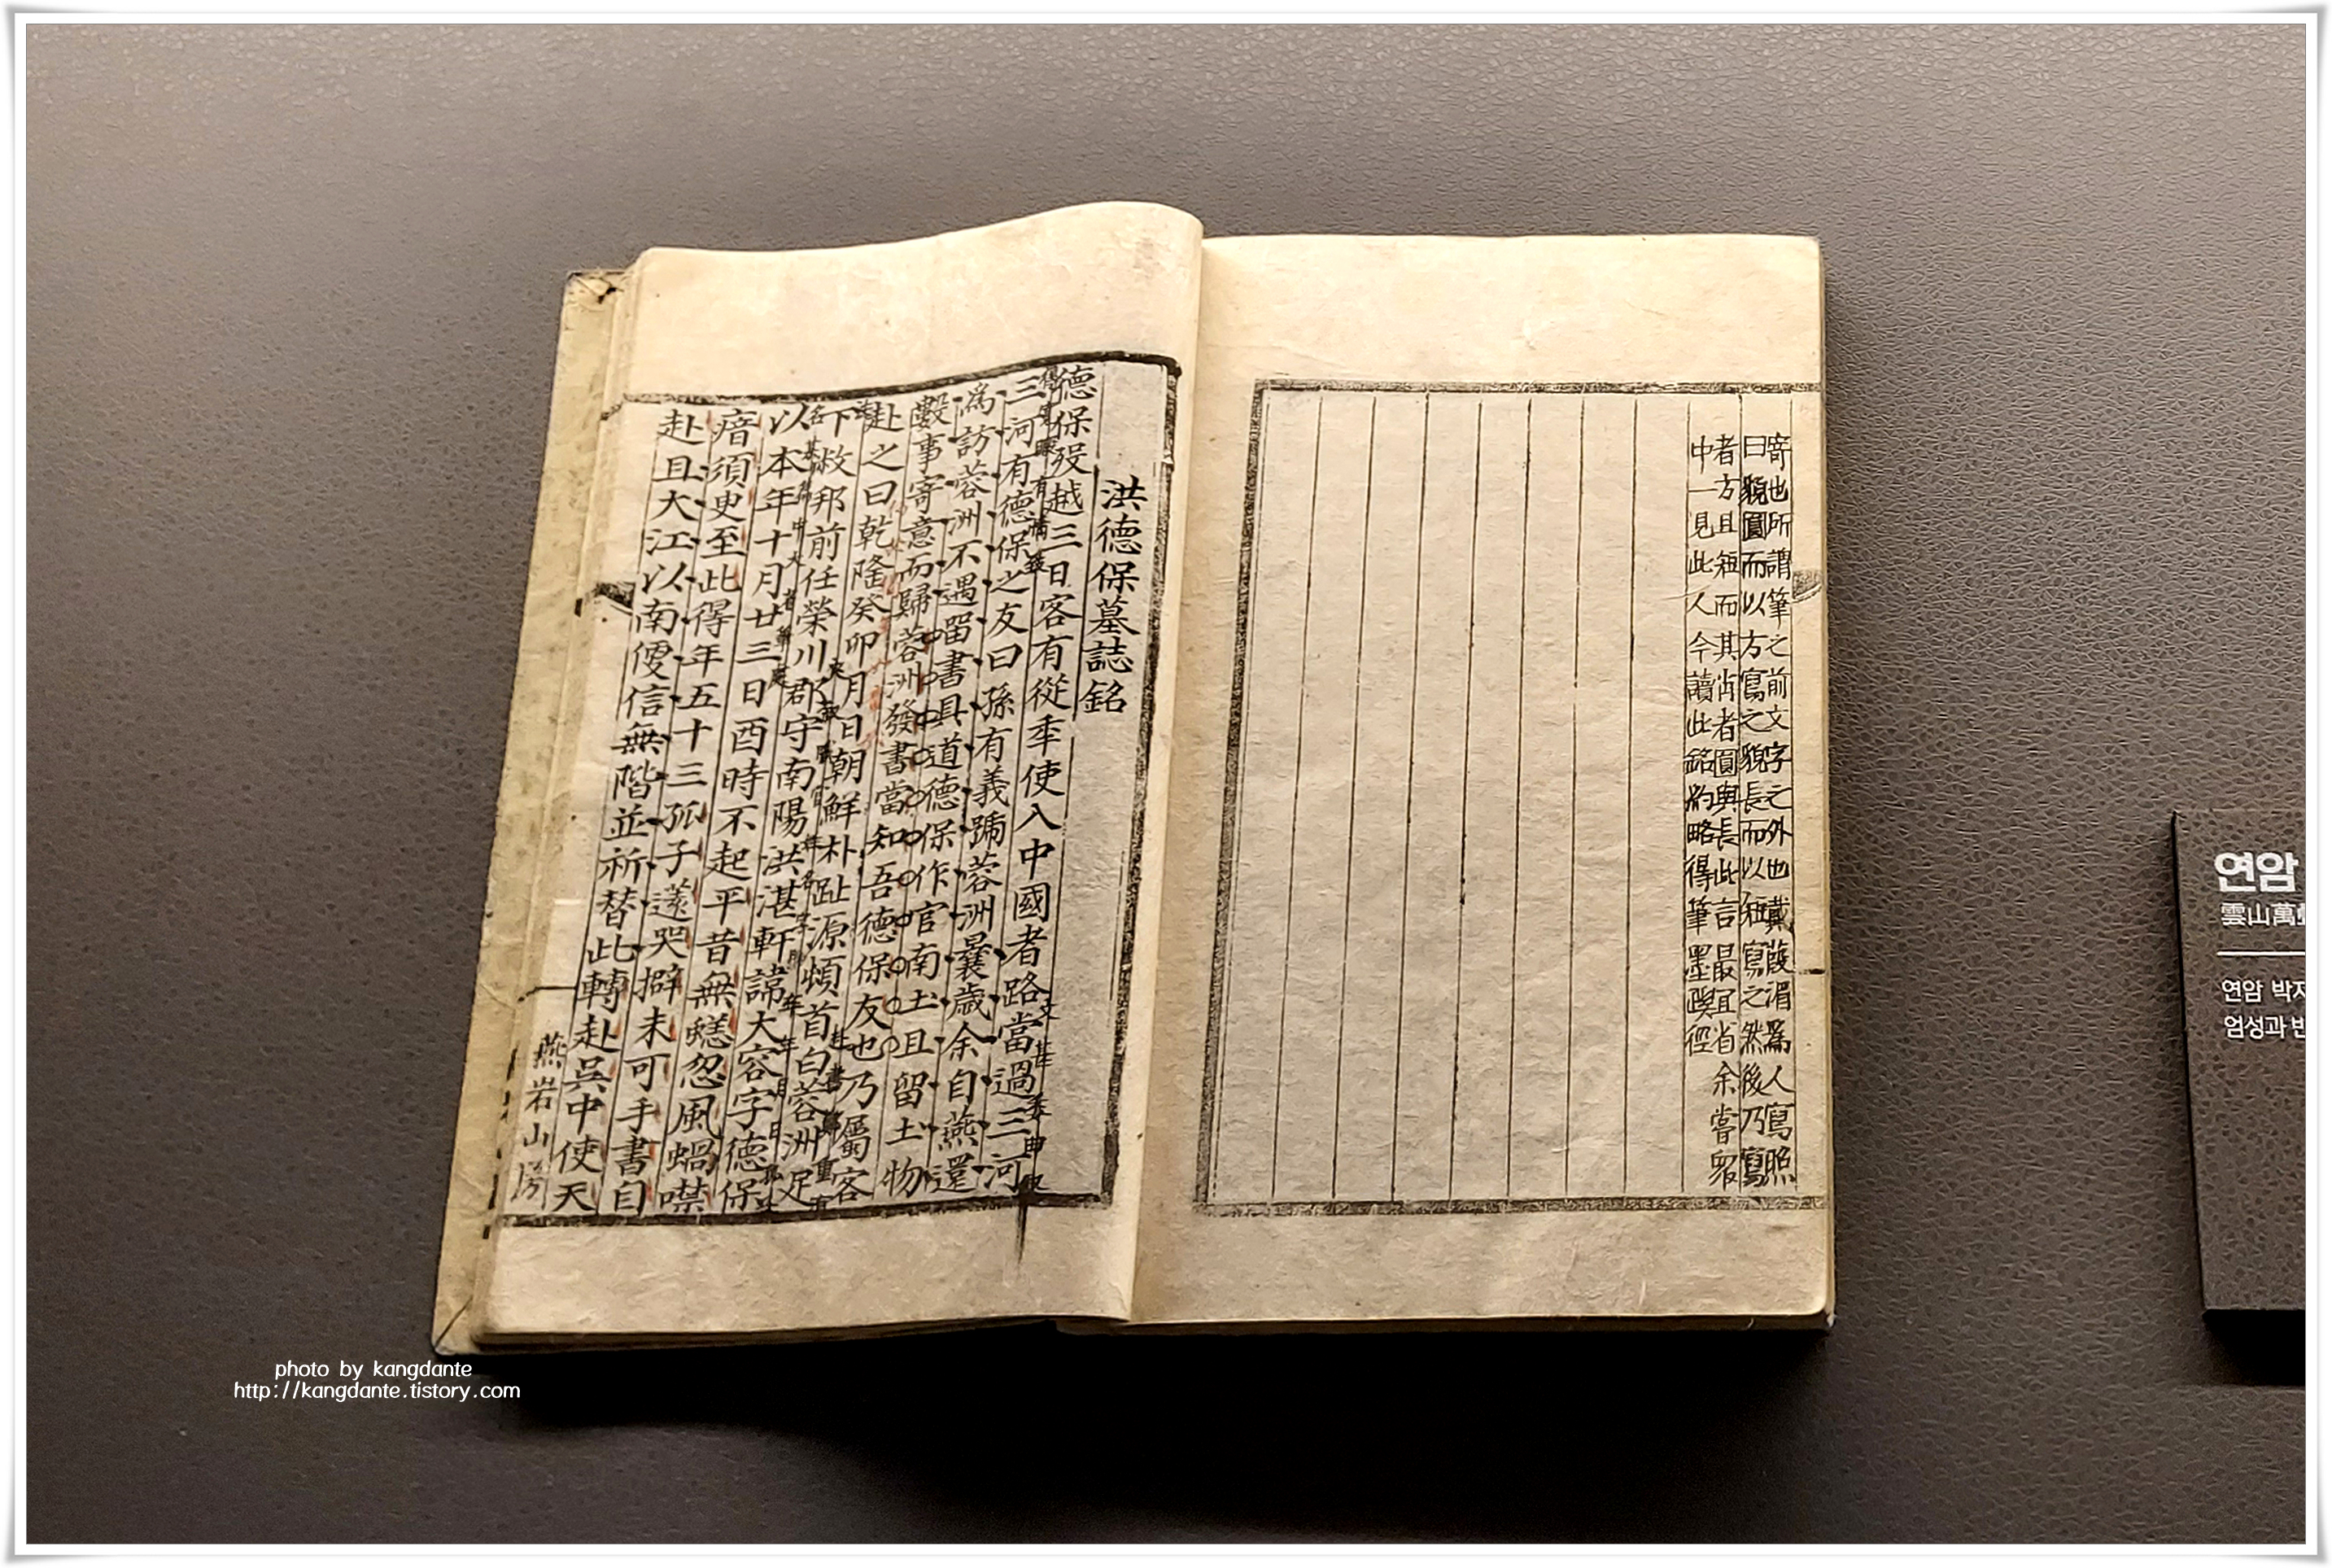 寄也所謂筆之前文字之外也戴葭湄爲人寫照
曰貌圓而以方寫之貌長而以短寫之然後乃寫
者方且短而其肖者圓與長此言最宜省余嘗眾
中一見此人今讀此銘約略得筆墨蹊徑
洪德保墓誌銘
德保歿越三日客有從年使入中國者路當過三河
三河有德保之友曰孫有義號蓉洲曩歲余自燕還
爲訪蓉洲不遇留書具道德保作官南土且留土物
數事寄意而歸蓉洲發書當知吾德保友也乃屬客
赴之曰乾隆癸卯月日朝鮮朴趾源頓首白蓉洲足
下敝邦前任榮川郡守南陽洪湛軒諱大容字德保
以本年十月廿三日酉時不起平昔無恙忽風喎噤
瘖須臾至此得年五十三孤子薳哭擗未可手書自
赴且大江以南便信無階並祈替此轉赴吳中使天
燕岩山房
연암
雲山萬
연암 박지
엄성과 반
photo by kangdante
http://kangdante.tistory.com